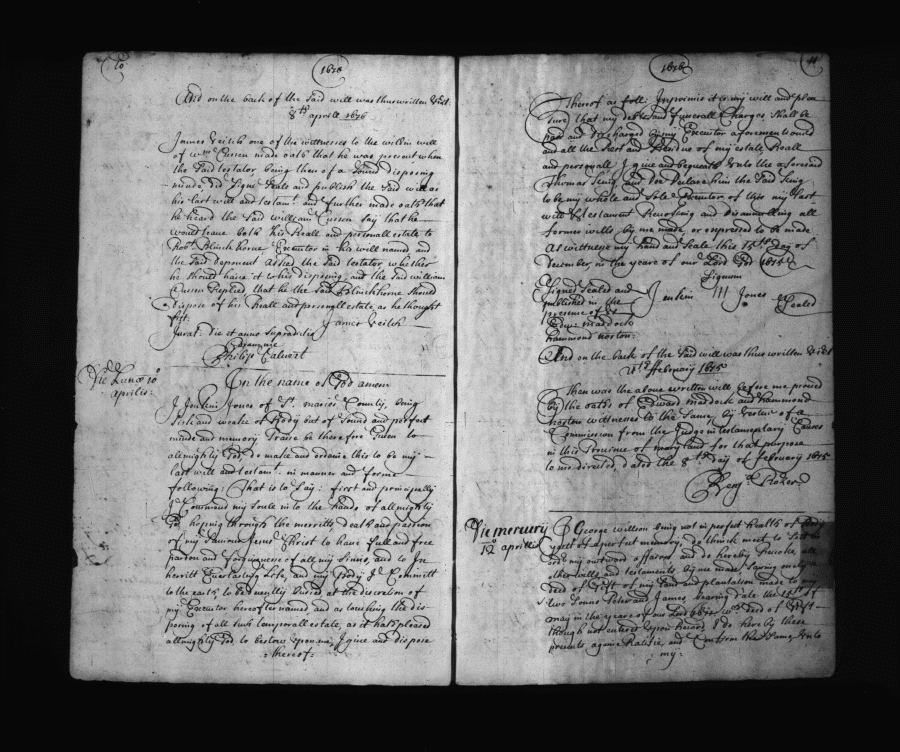 10
1676
And on the back of the said will was thus written vizt.
8th aprill 1676
James Veitch one of the wittnesses to the within will
of wm. Cussen made oath that he was present when
the said testator being then of a sound disposing
minde, did signe seale and publish the said will as
his last will and testamt. and further made oath that
he heard the said william Cussen say that he
would leave both his Reall and personall estate to
Robt. Blinckhorne Executor in his will named, and
the said deponent asked the said testator whether
he should have it to his disposing, and the said william
Cussen replied that he the said Blinckhorne should
dispose of his Reall and personall estate, as he thought
fitt.
James Veitch
Jurat. die et anno supradictis
Coram me
Philip Calvert
Die Lunae 10o
aprilis:
In the name of God amen
I Jenkin Jones of St. maries County, being
sick and weake of Body but of sound and perfect
minde and memory Praise be therefore Given to
allmighty God, do make and ordaine this to be my
last will and testamt. in manner and forme
following: That is to say: first and principally
I Commend my soule into the hands of allmighty
God hoping through the merritts, death and passion
of my saviour Jesus Christ to have full and free
pardon and forgiveness of all my sinns, and to In=
herritt Everlasting Life, and my Body I Committ
to the earth, to be decently buried at the discretion of
my Executor hereafter named, and as touching the dis=
posing of all such temporall estate, as it hath pleased
allmighty God to bestow upon me, I give and dispose
=thereof=
1676
11
Thereof as foll: Inprimis it is my will and plea
sure that my debts and funerall Charges shall be
paid and discharged by my Executor aforementioned
and all the Rest and Residue of my estate Reall
and personall I give and bequeath unto the aforesaid
Thomas and doe declare him the said
to be my whole and sole Executor of this my last
will & testament Revoking and disannulling all
former wills by me made, or expressed to be made
As wittness my hand and seale this 15th day of
December, in the yeare of our Lord God 1675
Signum
Signed sealed and
published in the
presence of us
Edw: maddock
Hammond norton:
Jenkin III Jones
Sealed
And on the back of the said will was thus written vizt
ffebruary 1675
Then was the above written will before me proved
by the oaths of Edward maddock and Hammond
norton wittnesses to the same, by vertue of a
Commission from the Judge in testamentary Causes
in this Province of maryland for that purpose
to me directed, dated the 8th day of february 1675
Benja. Rozer
Die mercurij
12o aprilis
I George willson being not in perfect health of Body
yett of a perfect memory, do think meet to sett in
order my outward affaires, and do hereby Revoke, all
other wills, and testaments by me made, saving onely a
deed of Gift of my land and plantation made to my
two sonns Peter and James bearing date the 15th of
may in the yeare of our Lord wch. deed of Gift
though not entred upon Record, I do here by these
presents againe Ratifie, and Confirm the same unto
=my=